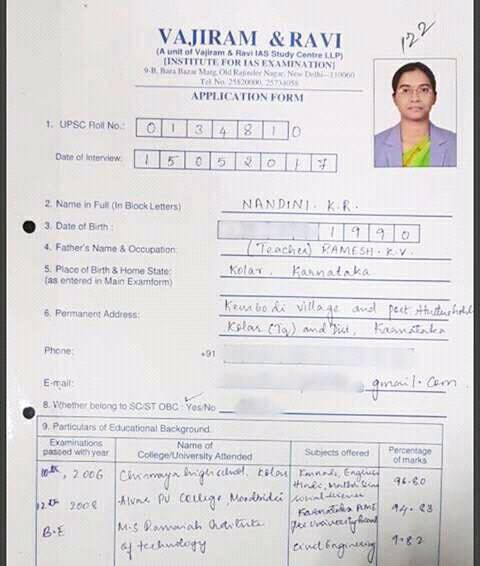 VAJIRAM & RAVI
(A unit of Vajiram & Ravi IAS Study Centre LLP)
[INSTITUTE FOR IAS EXAMINATION]
9-B, Bara Bazar Marg, Old Rajinder Nagar, New Delhi-110060
Tel. No. 25820000, 25734058
APPLICATION FORM
122
1. UPSC Roll No.: 0134810
Date of Interview: 15052017
2. Name in Full (In Block Letters) NANDINI. K.R.
3. Date of Birth : 1990
4. Father's Name & Occupation: (Teacher) RAMESH. K.V.
5. Place of Birth & Home State: Kolar, Karnataka
(as entered in Main Examform)
Kembodi village and post
6. Permanent Address: Kolar (Tq) and Dist, Karnataka
Phone: +91
E-mail: gmail.com
8. Whether belong to SC/ST OBC : Yes/No
9. Particulars of Educational Background.
Examinations passed with year | Name of College/University Attended | Subjects offered | Percentage of marks
10th, 2006 | Chinmaya high school, Kolar | Kannada, English
Hindi,
social science | 96.80
12th 2008 | PU College, Moodbidri | Karnataka
Pre University board | 94.83
B.E | M.S Ramaiah Institute
of technology | Civil Engineering | 9.82